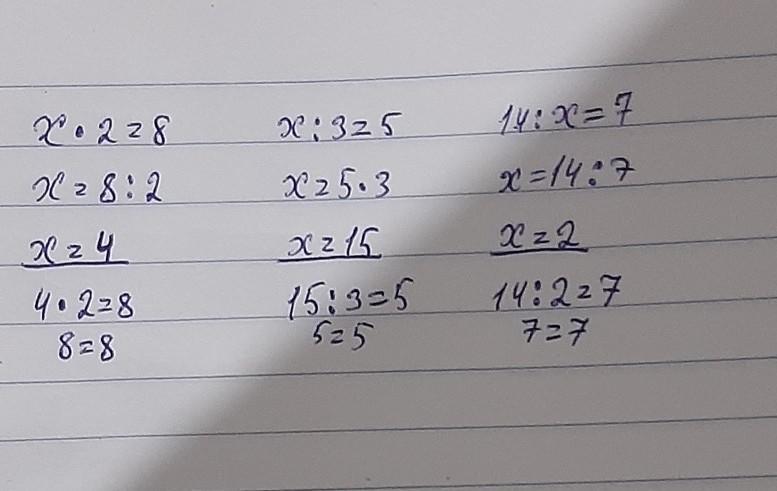 x · 2 = 8
x = 8 : 2
x = 4
4 · 2 = 8
8 = 8
x : 3 = 5
x = 5 · 3
x = 15
15 : 3 = 5
5 = 5
14 : x = 7
x = 14 : 7
x = 2
14 : 2 = 7
7 = 7